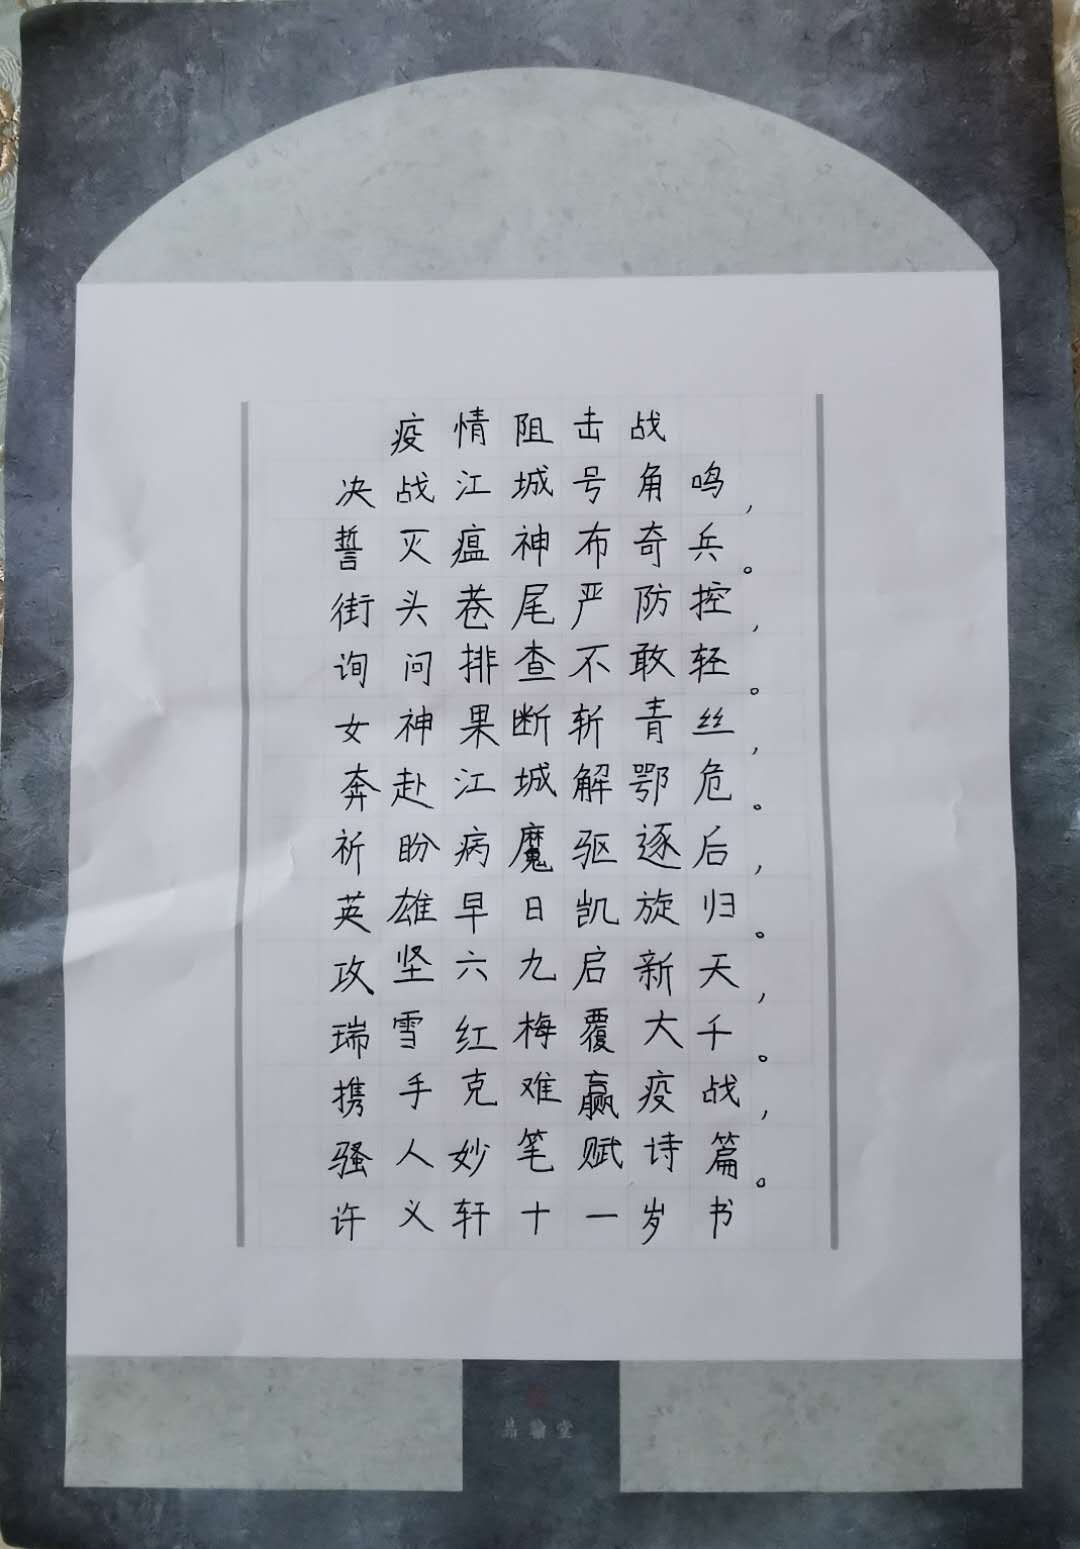 疫情阻击战
决战江城号角鸣，
誓灭瘟神布奇兵。
街头巷尾严防控，
询问排查不敢轻。
女神果断斩青丝，
奔赴江城解鄂危。
祈盼病魔驱逐后，
英雄早日凯旋归。
攻坚六九启新天，
瑞雪红梅覆大千。
携手克难赢疫战，
骚人妙笔赋诗篇。
许义轩十一岁书